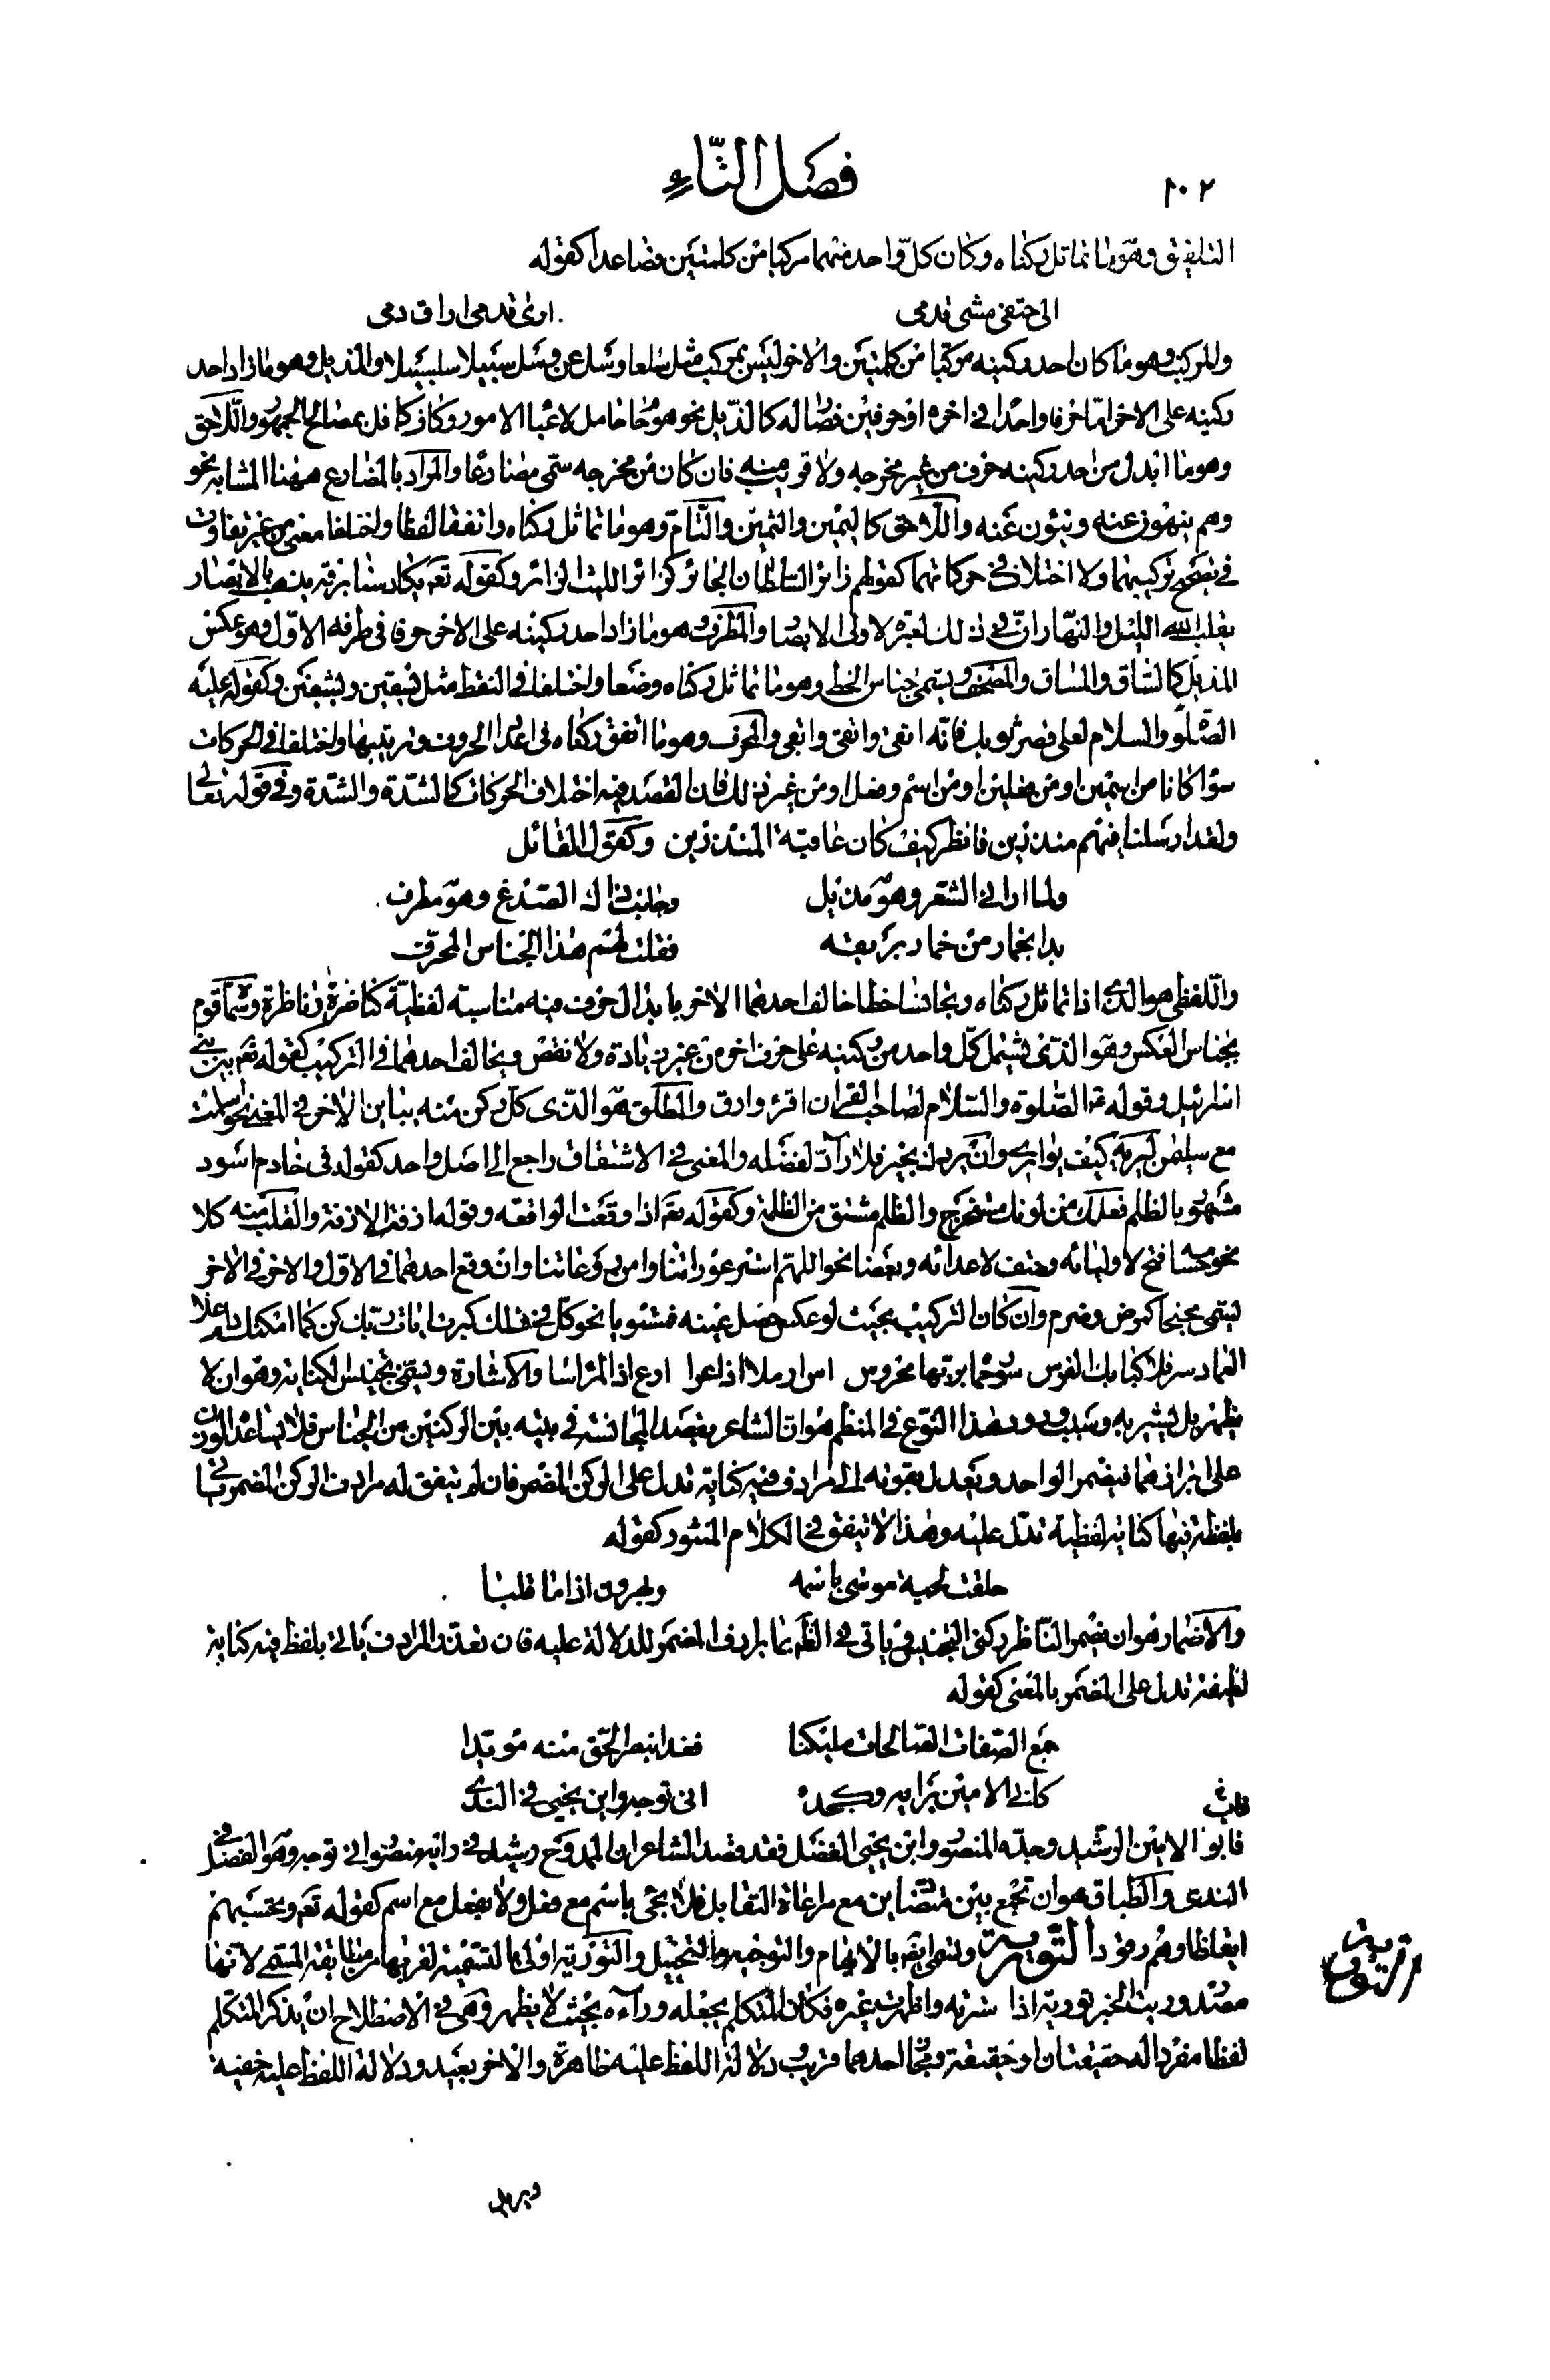 ١٠٢
فصل التّاء
التلفيق وهو ما تماثل ركناه وكان كلّ واحد منهما مركبا من كلمتين فصاعدا كقوله
الى حتفى مشى قدمى
ارى قدمى اراق دمى
والمركب وهو ما كان احد ركنيه مركبا من كلمتين والاخر ليس بمركب مثل سلعا وسل عن وسل سبيلا سلسبيلا والمذيل وهو ما زاد احد
ركنيه على الاخر امّا حرفا واحدا فى اخره او حرفين فصار له كالذيل نحو هو حام حامل لاعباء الامور وكاف كافل بمصالح الجمهور واللاحق
وهو ما ابدل من احد ركنيه حرف من غير مخرجه ولا قريب منه فان كان من مخرجه سمّى مضارعا والمراد بالمضارع ههنا المشابه نحو
وهم ينهون عنه وينؤن عنه واللاحق كاليمين والثمين والتّام وهو ما تماثل ركناه واتفقا لفظا واختلفا معنى من غير تفاوت
فى تصحيح تركيبهما ولا اختلاف فى حركاتهما كقولهم زائر السلطان الجائر كزائر الليث الزائر وكقوله تعم يكاد سنا برقه يذهب بالابصار
يقلب الله الليل والنهار انّ فى ذلك لعبرة لاولى الابصار والمطرف وهو ما زاد احد ركنيه على الاخر حرفا فى طرفه الاول وهو عكس
المذيل كالساق والمساق والمصحف ويسمى جناس الخط وهو ما تماثل ركناه وضعا واختلفا فى النقط مثل يسقين ويشفين وكقوله عليه
الصّلوة والسلام لعلى قصر ثوبك فانّه انقى واتقى وابقى والمحرف وهو ما اتفق ركناه فى اعداد الحروف وترتيبها واختلفا فى الحركات
سواء كانا من اسمين او من فعلين او من اسم وفعل او من غير ذلك فان القصد فيه اختلاف الحركات كالشدّة والشدّة وفى قوله تعالى
ولقد ارسلنا فيهم منذرين فانظر كيف كان عاقبة المنذرين وكقول القائل
ولما ارانى الشعر وهو مذيل
وقابلنى ذاك الصدغ وهو مطرف
بدا بخمار من خمار بريقه
فقلت لهم هذا الجناس المحرّف
واللفظى هو الذى اذا تماثل ركناه وتجانسا خطا خالف احدهما الاخر بابدال حرف منه مناسبة لفظيّة كناضرة وناظرة وسمّاه قوم
بجناس العكس وهو الذى يشتمل كلّ واحد من ركنيه على حرف اخر من غير زيادة ولا نقص ويخالف احدهما فى التركيب كقوله تعم بين بنى
اسرائيل وقوله ع‍ الصّلوة والسّلام لصاحب القران اقرء وارق والمطلق هو الذى كلّ ركن منه يباين الاخر فى المعنى نحو اسلمت
مع سليمن ليريه كيف يوارى وان يردك بخير فلا رآدّ لفضله والمعنى فى الاشتقاق راجع الى اصل واحد كقوله فى خادم اسود
مشهور بالظلم فعلك من لونك مستخرج والظلم مشتق من الظلمة وكقوله تعم اذا وقعت الواقعه وقوله ازفت الازفة والقلب منه كلا
نحو حسامه فتح لاوليائه وحتف لاعدائه وبعضا نحو اللهمّ استر عوراتنا وامن روعاتنا وان وقع احدهما فى الاول والاخر فى الاخر
يسمى مجنحا كمرض وضرم وان كان التركيب بحيث لو عكس حصل عينه فمستويا نحو كلّ فى فلك كبرت ايات ربك كن كما امكنك
العماد سر فلا كبا بك الفرس سور حماه بربها محروس اس ارملا اذا عرا وارع اذا المرء اسا والاشارة ويسمى تجنيس الكناية وهو ان لا
يظهر بل يشير به وسبب ورود هذا النوع فى النظم هو ان الشاعر يقصد المجانسة فى بيته بين الركنين من الجناس فلا يساعده الوزن
على ابرازهما فيضمر الواحد ويعدل بقوته الى مرادف فيه كناية تدل على الركن المضمر فان لم يتفق له مرادف الركن المضمر ياتى
بلفظة فيها كناية لفظية تدل عليه وهذا لا يتفق فى الكلام المنثور كقوله
حلقت لحية موسى باسمه
وبهرون اذا ما قلبا
والاضمار هو ان يضمر الناظر ركنى التجنيس وياتى فى الظ‍ بما يرادف المضمر للدلالة عليه فان تعذر المرادف ياتى بلفظ فيه كناية
لطيفة تدل على المضمر بالمعنى كقوله
جمع الصفات الصالحات مليكنا
فغدا بنصر الحقّ منه مؤيدا
كابى الامين برايه وكجده
انى توجه وابن يحيى فى الندى
فابو الامين الرشيد وجدّه المنصور وابن يحيى الفضل فقد قصد الشاعر ان الممدوح رشيد فى رايه منصور انى توجه وهو الفضل فى
الندى والطباق هو ان تجمع بين متضادين مع مراعاة التقابل فلا يجئ باسم مع فعل ولا بفعل مع اسم كقوله تعم وتحسبهم
ايقاظا وهم رقود التّورية وتسمى ايضا بالايهام والتوجيه والتخييل والتورية اولى بالتسمية لقربها من مطابقة المسمى لانها
مصدر وريت الخبر تورية اذا سترته واظهرت غيره فكان المتكلم يجعله ورآءه بحيث لا يظهر وهى فى الاصطلاح ان يذكر المتكلم
لفظا مفردا له حقيقتان او حقيقة ومجاز احدهما قريب ودلالة اللفظ عليه ظاهرة والاخر بعيد ودلالة اللفظ عليه خفية
التورية